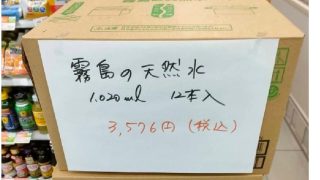 霧島の天然水
1.020ml 12本入
3,576円(税込)